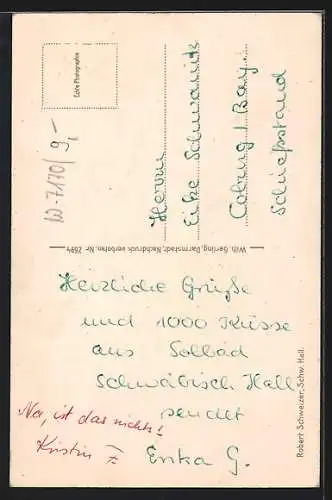 Echte Photographie
W-7170/ 9,-
Herrn
Eike Schwanitz
Coburg / Bay.
Schießstand
Wilh. Gerling, Darmstadt, Nachdruck verboten, Nr. 2694
Herzliche Grüße
und 1000 Küsse
aus Solbad
Schwäbisch Hall
sendet
Erika G.
Na, ist das nichts!
Kristin
Robert Schweizer, Schw. Hall.